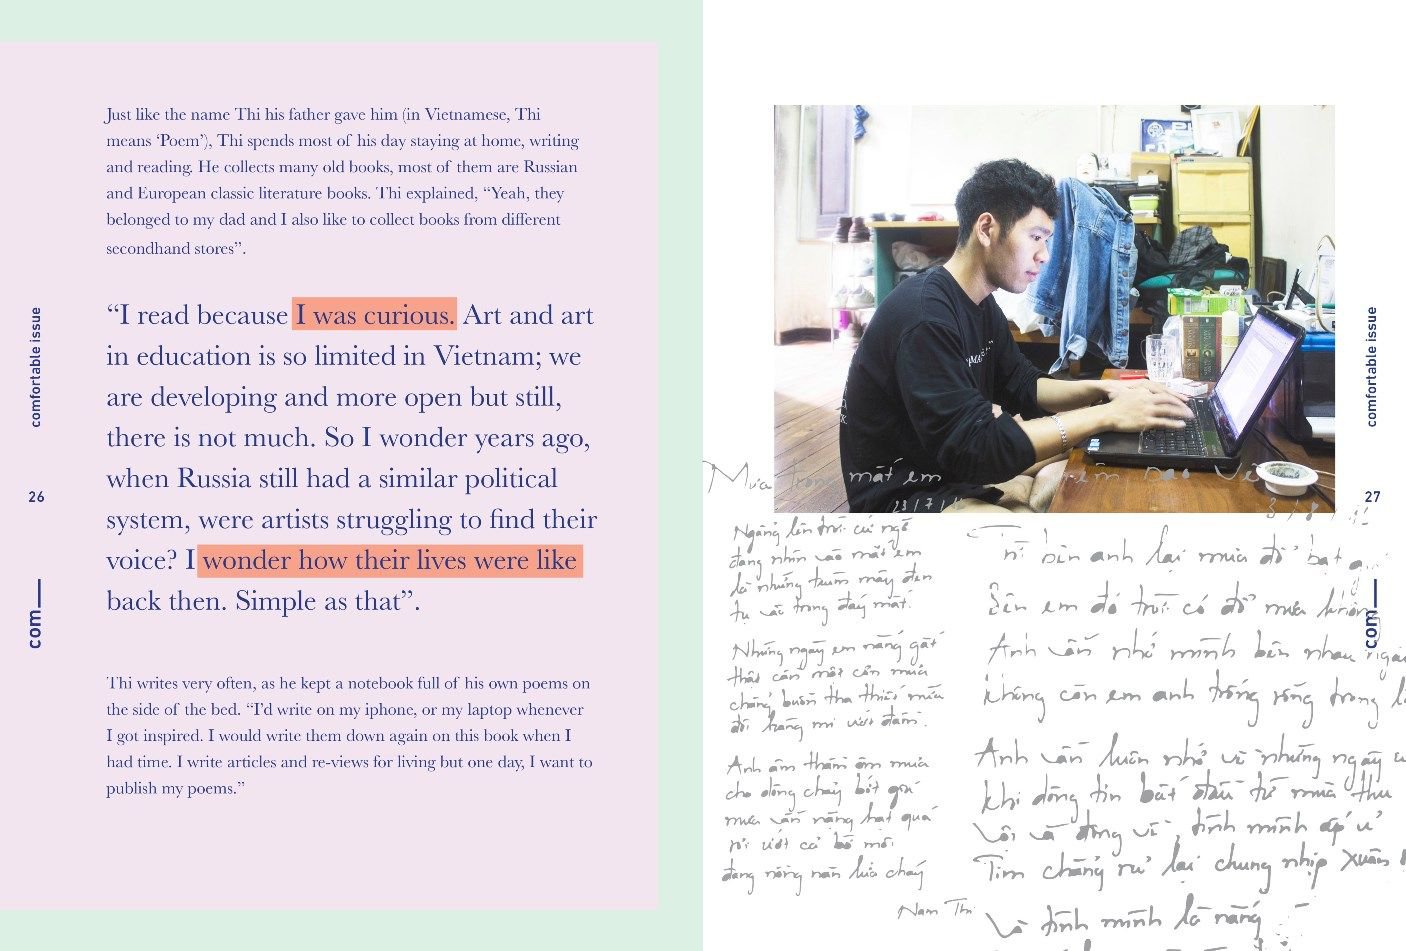 Just like the name Thi his father gave him (in Vietnamese, Thi
means ‘Poem’), Thi spends most of his day staying at home, writing
and reading. He collects many old books, most of them are Russian
and European classic literature books. Thi explained, “Yeah, they
belonged to my dad and I also like to collect books from different
secondhand stores”.
“I read because I was curious. Art and art
in education is so limited in Vietnam; we
are developing and more open but still,
there is not much. So I wonder years ago,
when Russia still had a similar political
system, were artists struggling to find their
voice? I wonder how their lives were like
back then. Simple as that”.
Thi writes very often, as he kept a notebook full of his own poems on
the side of the bed. “I’d write on my iphone, or my laptop whenever
I got inspired. I would write them down again on this book when I
had time. I write articles and re-views for living but one day, I want to
publish my poems.”
comfortable issue
26
com
Mưa trong mắt em
23/7/
Ngẩng lên trời cứ ngỡ
đang nhìn vào mắt em
là những đám mây đen
tụ vào trong đáy mắt.
Những ngày em nắng gắt
thật cần một cơn mưa
chẳng buồn tha thiết nữa
đôi hàng mi ướt đẫm.
Anh âm thầm ôm mưa
cho dòng chảy bớt
mưa vẫn nặng hạt quá
rơi ướt cả bờ môi
đang nồng nàn lửa cháy
Nam Thi
bên anh lại mưa đổ bất
Bên em đó trời có đổ mưa không
Anh vẫn nhớ mình bên nhau ngày
không còn em anh trống rỗng trong
Anh vẫn luôn nhớ về những ngày
khi đông tìn bắt đầu từ mùa thu
Vội vã đông về, tình mình ấp ủ
Tim chẳng rủ lại chung nhịp xuân
Và tình mình là nắng
comfortable issue
27
com